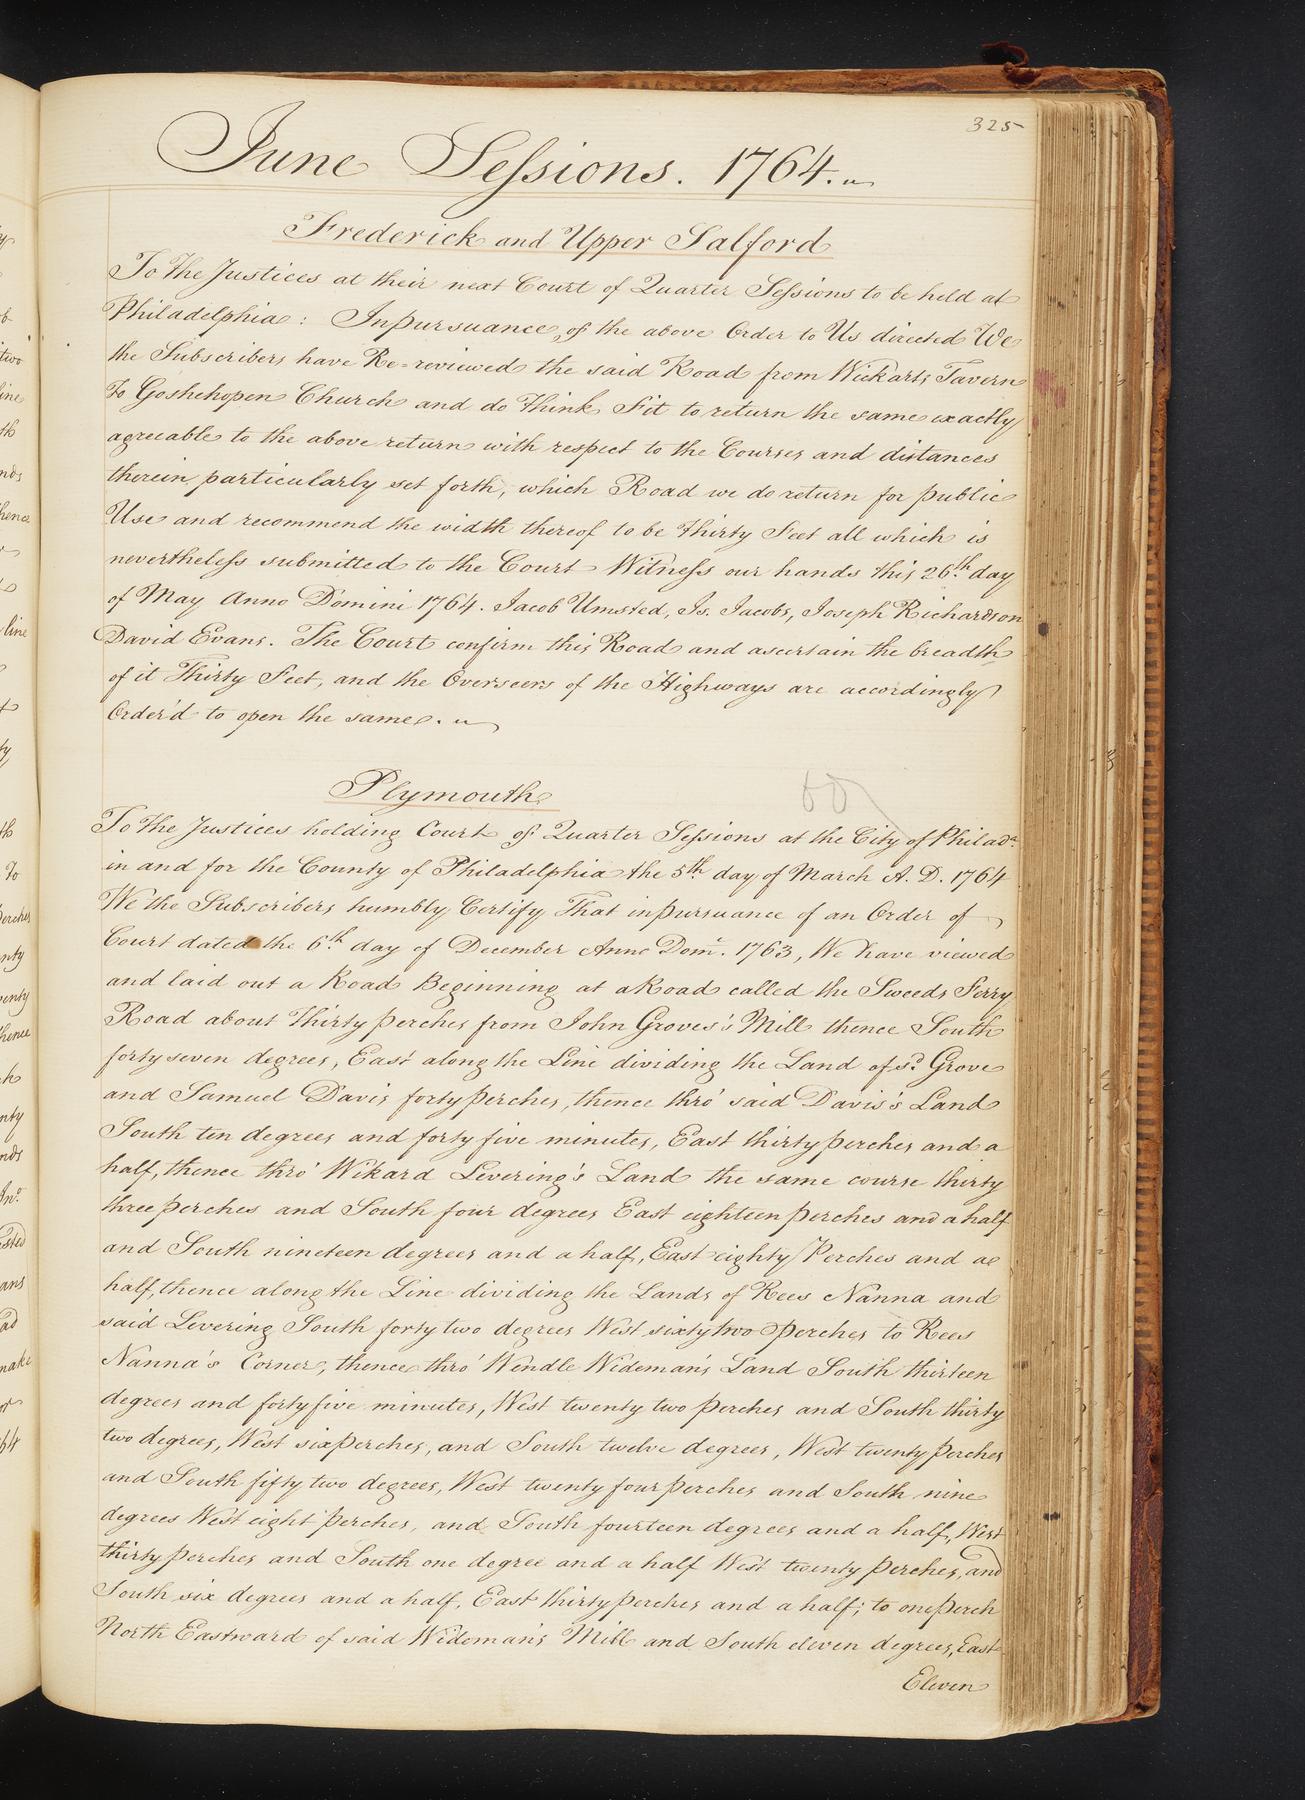 325
June Sessions. 1764.
Frederick and Upper Salford
To the Justices at their next Court of Quarter Sessions to be held at
Philadelphia: In pursuance of the above Order to Us directed We
the Subscribers have Re=reviewed the said Road from Wickarts Tavern
To Goshehopen Church and do think Fit to return the same exactly
agreeable to the above return with respect to the Courses and distances
therein particularly set forth, which Road we do return for public
Use and recommend the width thereof to be thirty Feet all which is
nevertheless submitted to the Court Witness our hands this 26th day
of May Anno Domini 1764. Jacob Umsted, Is. Jacobs, Joseph Richardson
David Evans. The Court confirm this Road and ascertain the breadth
of it Thirty Feet, and the Overseers of the Highways are accordingly
Order'd to open the same.
Plymouth
60
To the Justices holding Court of Quarter Sessions at the City of Philada.
in and for the County of Philadelphia the 5th day of March A. D. 1764
We the Subscribers humbly Certify That in pursuance of an Order of
Court dated the 6th day of December Anno Dom. 1763, We have viewed
and laid out a Road Beginning at a Road called the Sweeds Ferry
Road about thirty perches from John Groves's Mill thence South
forty seven degrees, East along the Line dividing the Land of sd. Grove
and Samuel Davis forty perches, thence thro' said Davis's Land
South ten degrees and forty five minutes, East thirty perches and a
half, thence thro' Wikard Levering's Land the same course thirty
three perches and South four degrees East eighteen perches and a half
and South nineteen degrees and a half, East eighty Perches and a
half, thence along the Line dividing the Lands of Rees Nanna and
said Levering South forty two degrees West sixty two perches to Rees
Nanna's Corner, thence thro' Wendle Wideman's Land South thirteen
degrees and forty five minutes, West twenty two perches and South thirty
two degrees, West six perches, and South twelve degrees, West twenty perches
and South fifty two degrees, West twenty four perches and South nine
degrees West eight perches, and South fourteen degrees and a half, West
thirty perches and South one degree and a half West twenty perches, and
South six degrees and a half, East thirty perches and a half; to one perch
North Eastward of said Wideman's Mill and South eleven degrees, East
Eleven